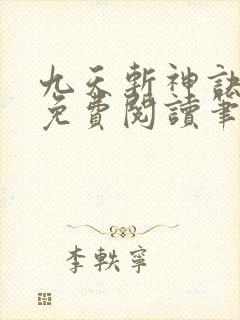 九天斬神訣
免費閱讀筆
李軼寧